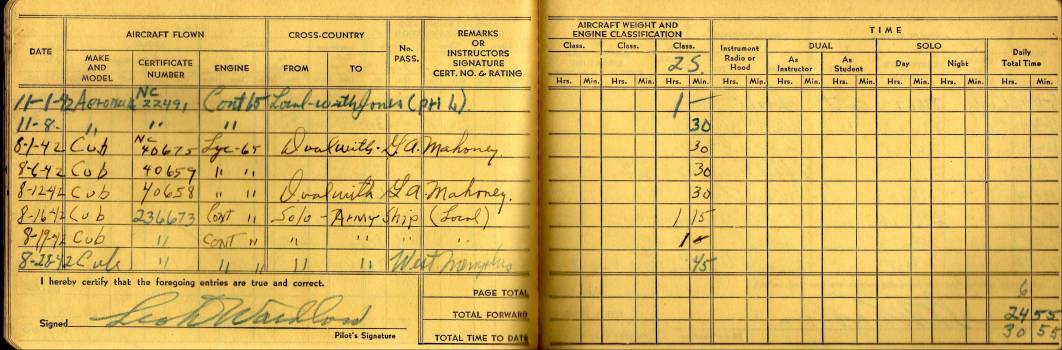 DATE AIRCRAFT FLOWN CROSS-COUNTRY No. PASS. REMARKS OR INSTRUCTORS SIGNATURE CERT. NO. & RATING AIRCRAFT WEIGHT AND ENGINE CLASSIFICATION TIME
MAKE AND MODEL CERTIFICATE NUMBER ENGINE FROM TO Class. Class. Class. 2S. Instrument Radio or Hood DUAL SOLO Daily Total Time
As Instructor As Student Day Night
Hrs. Min. Hrs. Min. Hrs. Min. Hrs. Min. Hrs. Min. Hrs. Min. Hrs. Min. Hrs. Min. Hrs. Min.
11-1-42 Aeronca NC 22491 Cont 65 Local-with Jones (pri 4). 1 -
11-8- " " " 30
8-1-42 Cub NC 40675 Lyc-65 Dual with G.A. Mahoney. 30
8-6-42 Cub 40659 " " 30
8-1242 Cub 40658 " " Dual with G.A. Mahoney. 30
8-16-42 Cub 236673 Cont " Solo - Army Ship (Local) 1 15
8-19-42 Cub " CONT " " " " " 1 -
8-28-42 Cub " " " " " West Memphis 45
I hereby certify that the foregoing entries are true and correct.
PAGE TOTAL 6
TOTAL FORWARD 24 55
Signed
Pilot's Signature
TOTAL TIME TO DATE 30 55